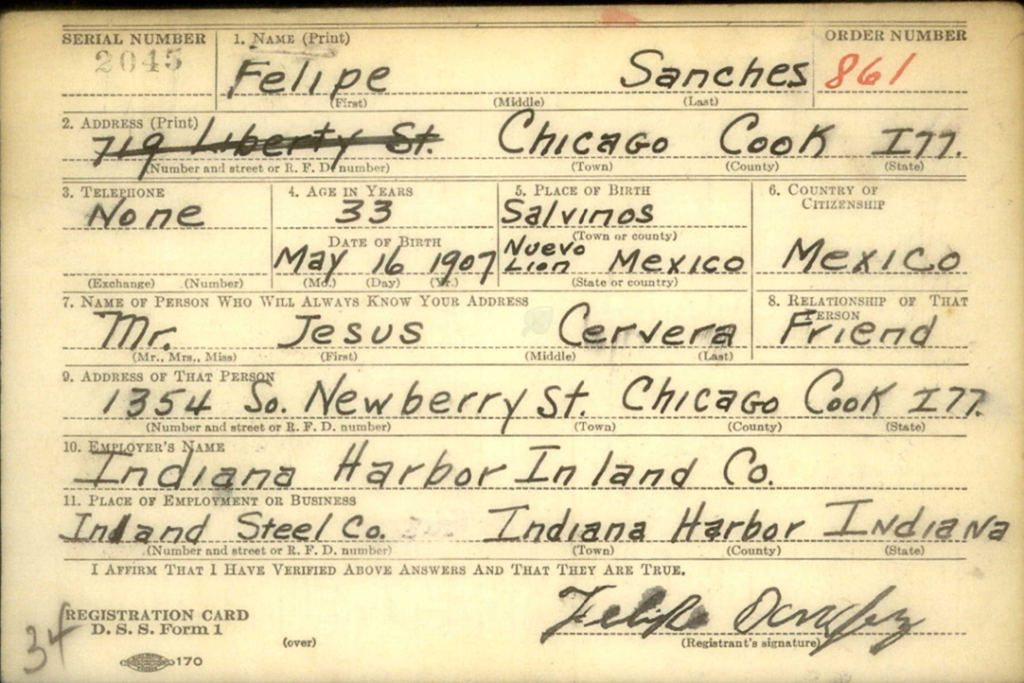 SERIAL NUMBER 1. NAME (Print) ORDER NUMBER
2045 Felipe Sanches 861
(First) (Middle) (Last)
2. ADDRESS (Print)
719 Liberty St. Chicago Cook Ill.
(Number and street or R. F. D. number) (Town) (County) (State)
3. TELEPHONE 4. AGE IN YEARS 5. PLACE OF BIRTH 6. COUNTRY OF CITIZENSHIP
None 33 Salvinos
(Town or county)
DATE OF BIRTH
May 16 1907 Nuevo Lion Mexico Mexico
(Exchange) (Number) (Mo.) (Day) (Yr.) (State or country)
7. NAME OF PERSON WHO WILL ALWAYS KNOW YOUR ADDRESS 8. RELATIONSHIP OF THAT PERSON
Mr. Jesus Cervera Friend
(Mr., Mrs., Miss) (First) (Middle) (Last)
9. ADDRESS OF THAT PERSON
1354 So. Newberry St. Chicago Cook Ill.
(Number and street or R. F. D. number) (Town) (County) (State)
10. EMPLOYER'S NAME
Indiana Harbor Inland Co.
11. PLACE OF EMPLOYMENT OR BUSINESS
Inland Steel Co. Indiana Harbor Indiana
(Number and street or R. F. D. number) (Town) (County) (State)
I AFFIRM THAT I HAVE VERIFIED ABOVE ANSWERS AND THAT THEY ARE TRUE.
REGISTRATION CARD
D. S. S. Form 1
(over)
Felipe
(Registrant's signature)
34
170